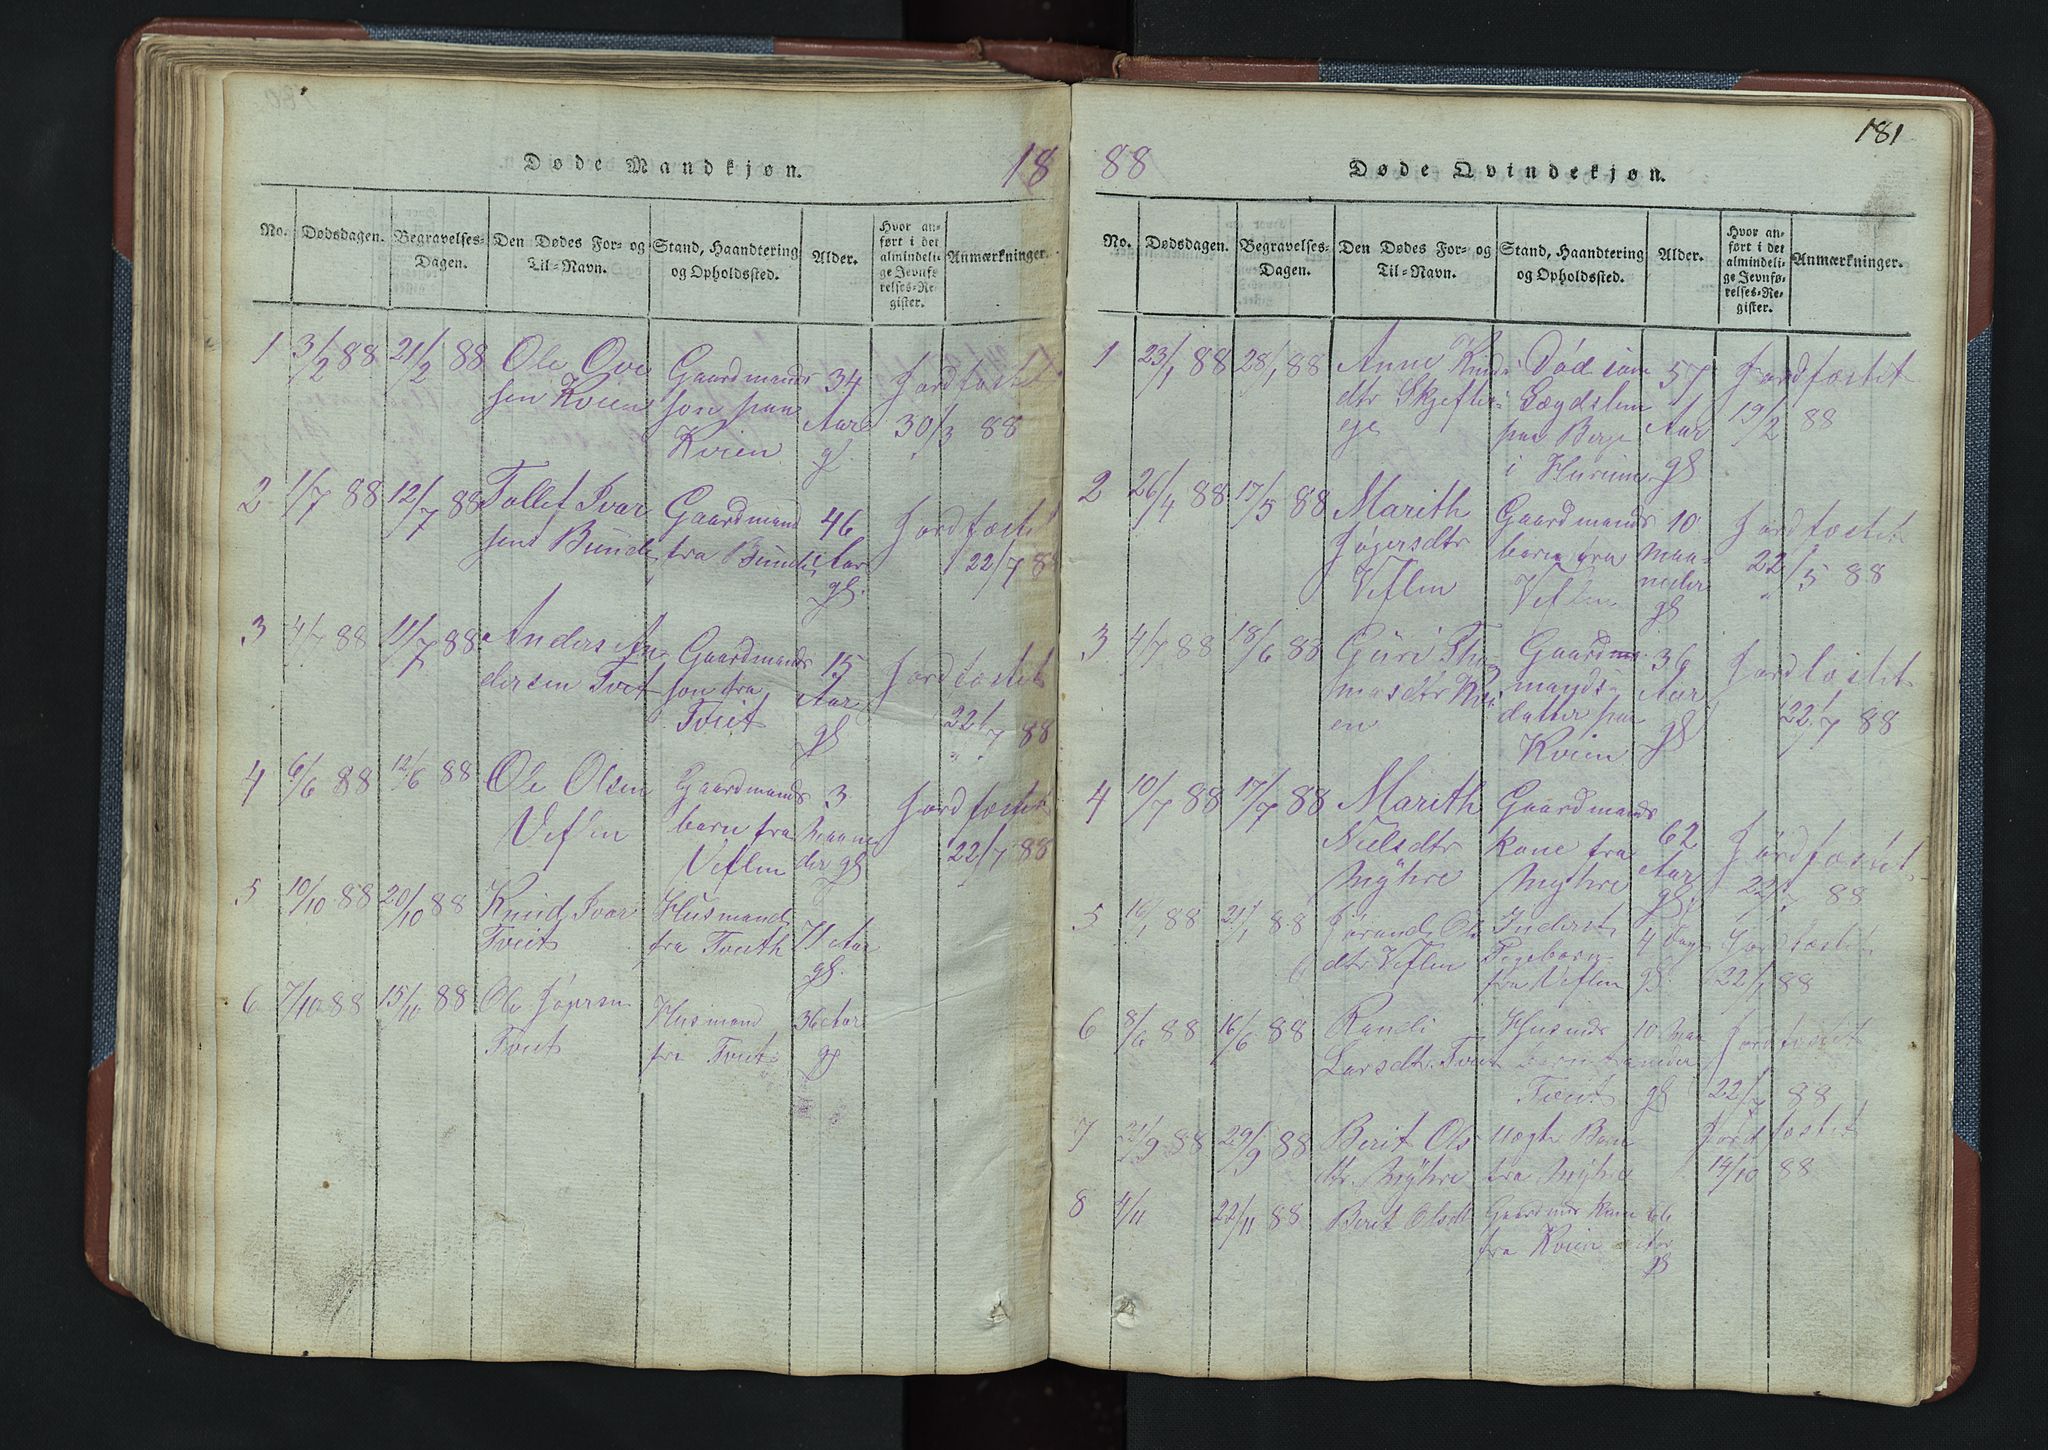 181
Døde Mandkjøn.
18
No. Dødsdagen. Begravelses-Dagen. Den Dødes For- og Til-Navn. Stand, Haandtering og Opholdssted. Alder. Hvor anført i det almindelige Jevnførelses-Register. Anmærkninger.
1 3/2 88 21/2 88 Ole Ove Gaardmands 34 Jordfæstet
sen Kvien son paa Aar 30/3 88
Kvien gl.
2 1/7 88 12/7 88 Tollef Ivar Gaardmand 46 Jordfæstet
sen Bunde fra Bunde Aar 22/7 88
gl.
3 4/7 88 11/7 88 Anders An Gaardmands 15 Jordfæstet
dersen Tveit son fra Aar 22/7 88
Tveit gl
4 6/6 88 12/6 88 Ole Olsen Gaardmands 3 Jordfæstet
Veflen barn fra Maane 22/7 88
Veflen der gl
5 10/10 88 20/10 88 Knud Ivar Husmand 71 Aar
Tveit fra Tveith gl.
6 7/10 88 15/10 88 Ole Husmand 36 Aar
Tveit fra Tveit gl
88
Døde Qvindekjøn.
No. Dødsdagen. Begravelses-Dagen. Den Dødes For- og Til-Navn. Stand, Haandtering og Opholdssted. Alder. Hvor anført i det almindelige Jevnførelses-Register. Anmærkninger.
1 23/1 88 28/1 88 Anne Knuds Død som 57 Jordfæstet
dtr Lægdslem Aar 19/2 88
paa Berge gl
i Hurum
2 26/4 88 17/5 88 Marith Gaardmands 10 Jordfæstet
barn fra Maa- 22/5 88
Veflen Veflen neder
gl
3 4/7 88 18/6 88 Guri Tho Gaard 36 Jordfæstet
masdtr Kvi mands- Aar 22/7 88
en datter paa gl
Kvien
4 10/7 88 17/7 88 Marith Gaardmands 62 Jordfæstet
Nielsdtr kone fra Aar 22/7 88
Myhre Myhre gl.
5 16/1 88 21/1 88 Jørand Ols Inderst 4 Dag Jordfæstet
dtr Veflen gl. 22/1 88
fra Veflen
6 8/6 88 16/6 88 Randi 10 Maa Jordfæstet
Larsdtr. Tveit barn fra neder 22/7 88
Tveit gl
7 21/9 88 29/9 88 Berit Ols Jordfæstet
dtr. Myhre fra Myhre 14/10 88
8 4/11 22/11 88 Berit Olsdt Kone
fra Kvien Aar
gl